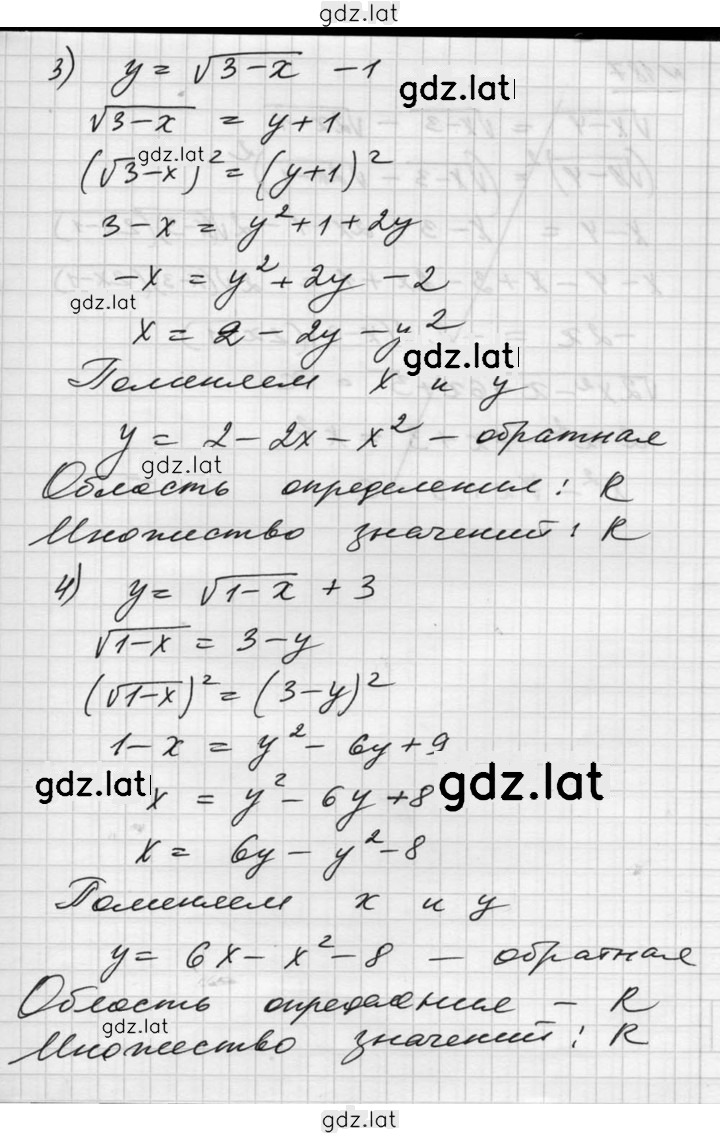 gdz.lat
3) y = √(3-x) - 1
gdz.lat
√(3-x) = y + 1
gdz.lat
(√(3-x))² = (y+1)²
3-x = y²+1+2y
-x = y²+2y-2
gdz.lat
x = 2-2y-y²
gdz.lat
Поменяем x и y
y = 2-2x-x² - обратная
gdz.lat
Область определения: R
Множество значений: R
4) y = √(1-x) + 3
√(1-x) = 3-y
(√(1-x))² = (3-y)²
1-x = y²-6y+9
gdz.lat
x = y²-6y+8
gdz.lat
x = 6y-y²-8
Поменяем x и y
y = 6x-x²-8 - обратная
Область определения - R
gdz.lat
Множество значений: R
gdz.lat